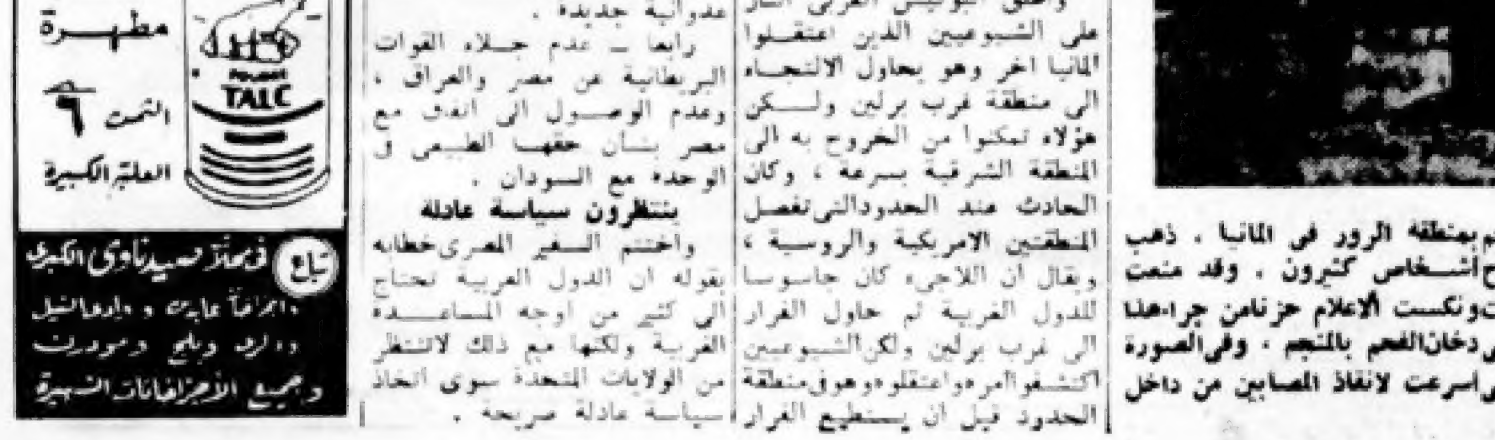 بمنطقة الرور فى المانيا . ذهب
أشخاص كثيرون . وقد منعت
ونكست الاعلام حزنا من جراء هذا
دخان الفحم بالمنجم . وفى الصورة
أسرعت لانقاذ المصابين من داخل
على الشيوعيين الذين اعتقلوا
المانيا اخر وهو يحاول الالتجاء
الى منطقة غرب برلين ولكن
هؤلاء تمكنوا من الخروج به الى
المنطقة الشرقية بسرعة ، وكان
الحادث عند الحدود التى تفصل
المنطقتين الامريكية والروسية ،
ويقال ان اللاجىء كان جاسوسا
للدول الغربية ثم حاول الفرار
الى غرب برلين ولكن الشيوعيين
اكتشفوا امره واعتقلوه وهو فى منطقة
الحدود قبل ان يستطيع الفرار
عدوانية جديدة .
رابعا ـ عدم جلاء القوات
البريطانية عن مصر والعراق ،
وعدم الوصول الى اتفاق مع
مصر بشأن حقها الطبيعى فى
الوحدة مع السودان .
ينتظرون سياسة عادلة
واختتم السفير المصرى خطابه
بقوله ان الدول العربية تحتاج
الى كثير من اوجه المساعدة
الغربية ولكنها مع ذلك لاتنتظر
من الولايات المتحدة سوى اتخاذ
سياسة عادلة صريحة .
مطهرة
TALC
الثمن ٩
العلبة الكبيرة
تباع فى محلات صيدناوى الكبرى
وجميع الأجزاخانات الشهيرة